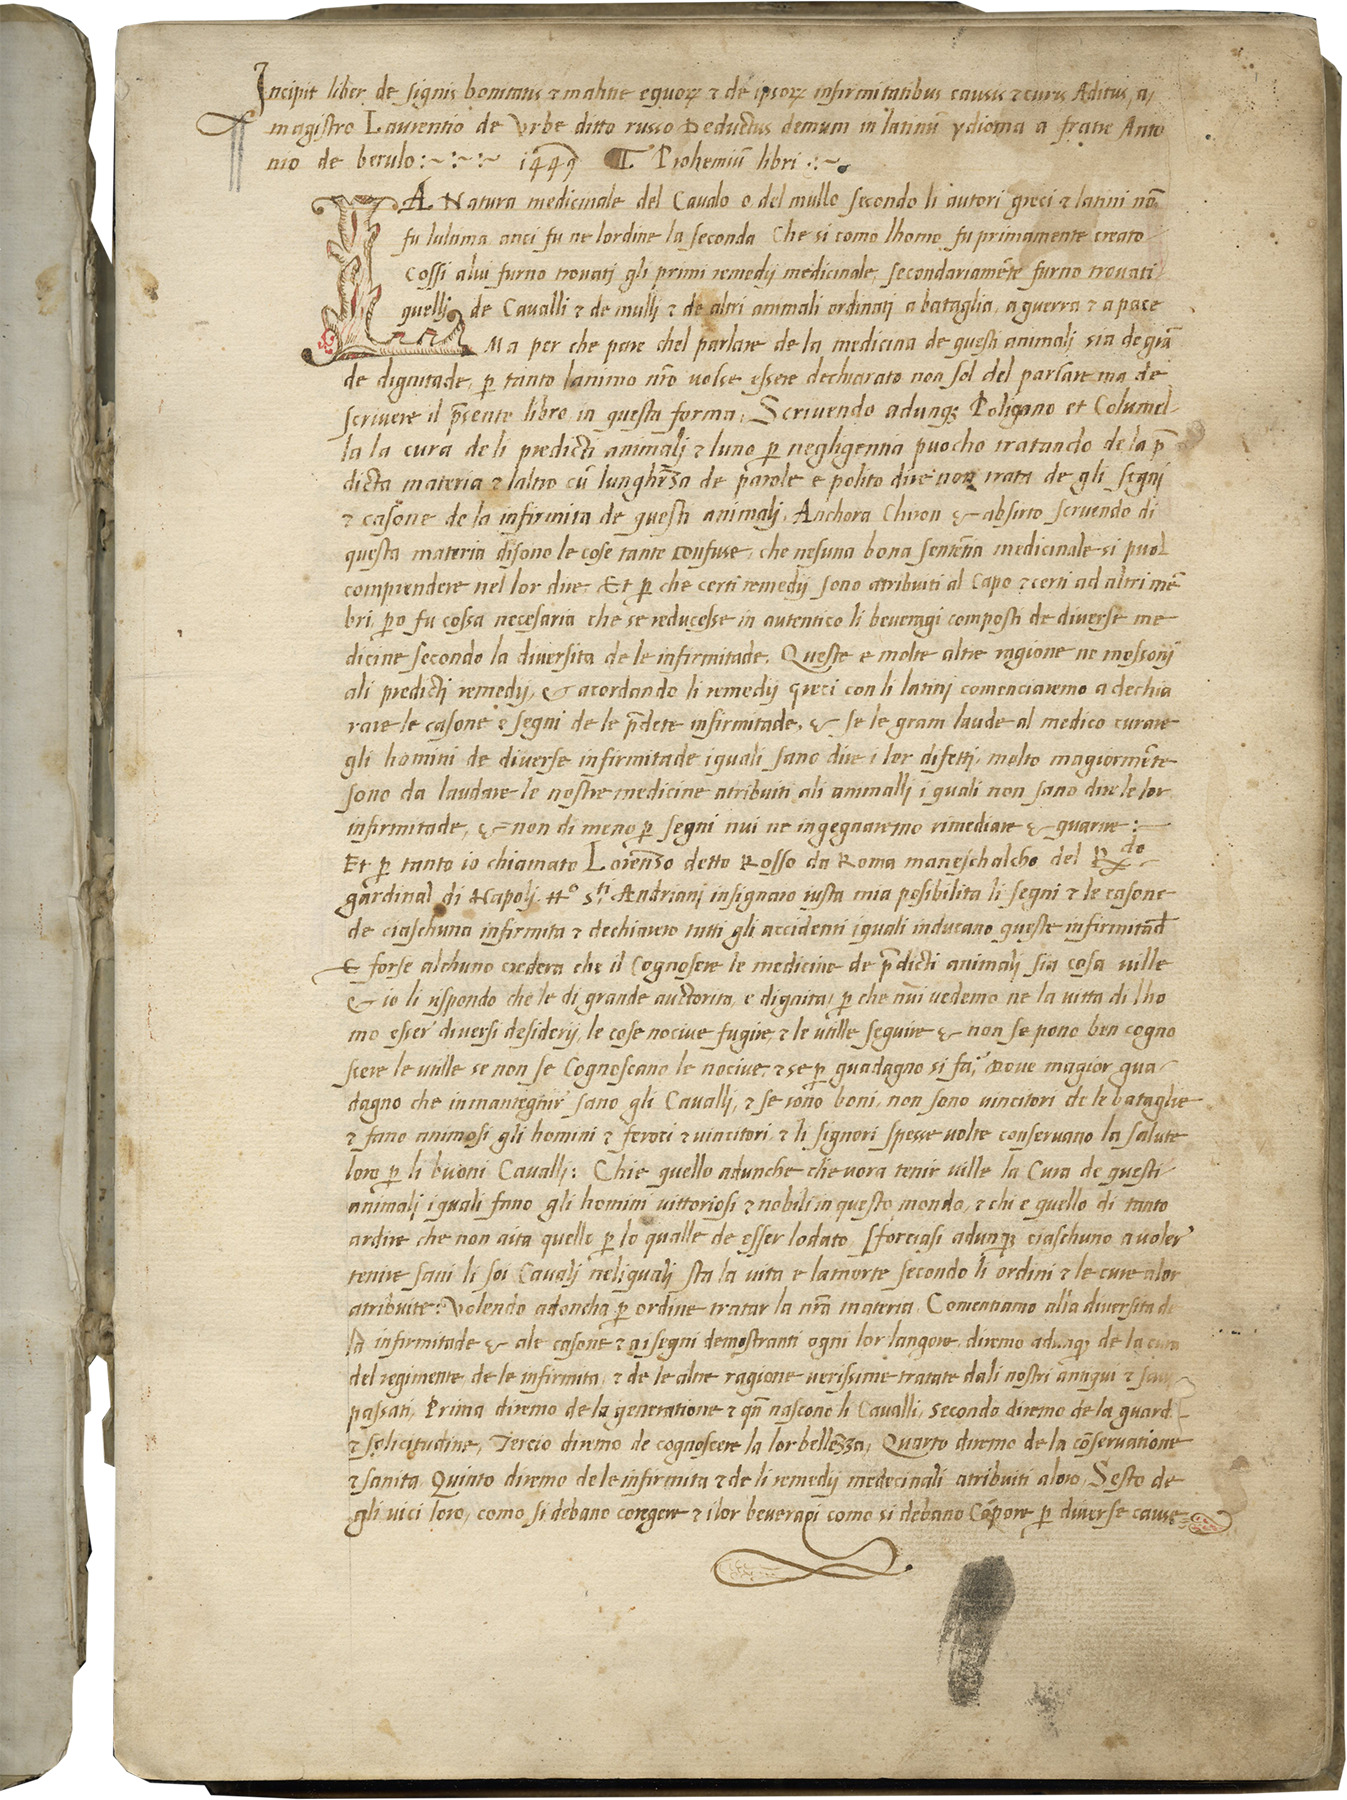 Incipit liber de signis bonitatis ⁊ malitie equoꝝ ⁊ de ipsoꝝ infirmitatibus causis ⁊ curis Aditus, a,
magistro Laurentio de Vrbe ditto russo Deductus demum in latinũ ydioma a fratre Anto
nio de berulo :~ :~ :~ 1449 Prohemiũ libri :~
LA Natura medicinale del Cavalo o del mullo secondo li autori greci ⁊ latini nõ
fu lultima anci fu ne lordine la seconda Che si como lhomo fu primamente creato
Cossi a lui furno trovatj gli primi remedij medicinale, secondariamẽte furno trovati
quellj de Cavalli ⁊ de mulli ⁊ de altri animali ordinatj a bataglia, a guerra ⁊ a pace
Ma per che pare chel parlare de la medicina de questi animalj sia de grã
de dignitade, p̲ tanto lanimo nr̃o volse essere dechiarato non sol del parlare ma de
scrivere il p̃sente libro in questa forma, Scrivendo adunqꝫ Poligano et Columel
la la cura de li predicti animalj ⁊ luno p̲ negligentia puocho tratando de la p̃
dicta materia ⁊ laltro cũ lunghezza de parole e polito dire non trata de gli segni
⁊ casone de la infirmita de questi animalj, Anchora Chiron & absirto scrivendo di
questa materia disono le cose tante confuse, che nesuna bona sentẽtia medicinale si puol
comprendere nel lor dire. Et p̲ che certi remedij sono atribuiti al Capo ⁊ certi ad altri mẽ
bri, p̲o fu cossa necesaria che se reducesse in autentico li beveragi composti de diverse me
dicine secondo la diversita de le infirmitade. Queste e molte altre ragione ne mossonj
ali predictj remedij, & acordando li remedij greci con li latinj comenciaremo a dechia
rare le casone e segni de le p̃dete infirmitade, & se le gram laude al medico curare
gli homini de diverse infirmitade i quali sano dire i lor difetti, molto magiormẽte
sono da laudare le nostre medicine atribuiti ali animallj i quali non sano dire le lor
infirmitade, & non di meno p̲ segni nui ne ingegnaremo rimediare & guarire :
Et p̲ tanto io chiamato Lorenzo detto Rosso da Roma maneschalcho del R.do
gardinal di Napoli tt.o s.ti Andrianj insignaro iusta mia posibilita li segni ⁊ le casone
de ciaschuna infirmita ⁊ dechiarero tutti gli accidenti i quali inducano queste infirmitad
E forse alchuno credera che il Cognoscere le medicine de p̃dicti animalj sia cosa ville
& io li rispondo che le di grande auctorita, e dignita, p̲ che nui vedemo ne la vitta di lho
mo esser diversi desiderij, le cose nocive fugire, ⁊ le utille seguire & non se pono ben cogno
scere le utille se non se Cognoscano le nocive, ⁊ se p̲ guadagno si fa, Dove magior gua
dagno che in mantegnir sano gli Cavallj, ⁊ se sono boni, non sono vincitori de le bataglie
⁊ fano animosi gli homini ⁊ feroci ⁊ vincitori, ⁊ li signori spesse volte conservano la salute
loro p̲ li buoni Cavalli : Chi e quello adunche che vora tenir ville la Cura de questi
animalj i quali fano gli homini vittoriosi ⁊ nobili in questo mondo, ⁊ chi e quello di tanto
ardire che non aita quello p̲ lo qualle de esser lodato. Sforciasi adunqꝫ ciaschuno a voler
tenire sani li soi Cavalj neli quali sta la vita e la morte secondo li ordini ⁊ le cure a lor
atribuite : Volendo adoncha p̲ ordine tratar la nr̃a materia, Comentiamo alla diversita de
infirmitade & ale casone ⁊ ai segni demostranti ogni lor langore, diremo adunqꝫ de la cura
del regimente, de le infirmita, ⁊ de le altre ragione verissime tratate dali nostri antiqui ⁊
passati, Prima diremo de la generatione ⁊ qñ nascono li Cavalli, secondo diremo de la guard
⁊ solicitudine, Tercio diremo de cognoscere la lor bellezza, Quarto diremo de la cõservatione
⁊ sanita, Quinto diremo de le infirmita ⁊ de li remedij medecinali atribuiti a loro, Sesto de
gli vici loro, como si debano coregere ⁊ i lor beveragi como si debano Cõpore p̲ diverse cause